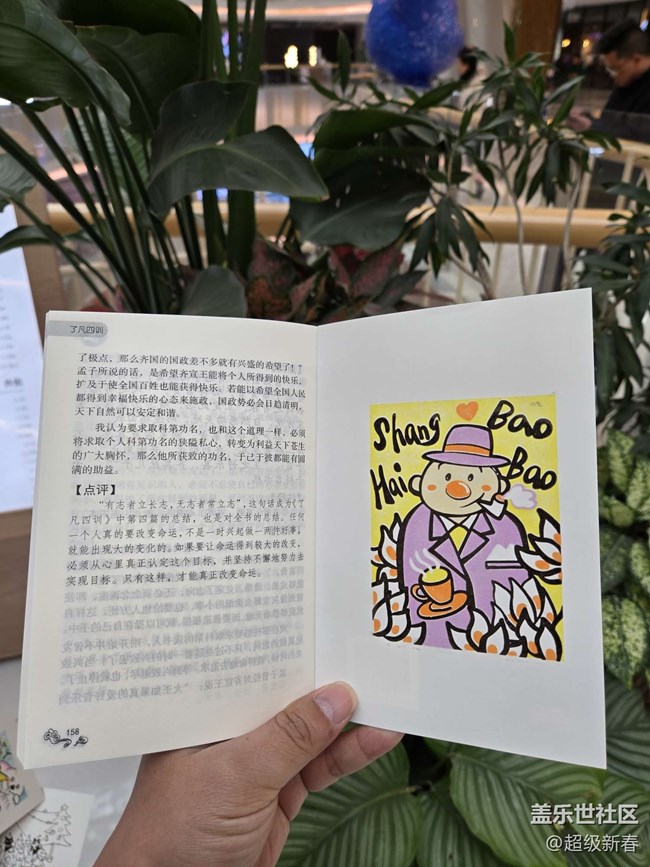 了凡四训
了极点，那么齐国的国政差不多就有兴盛的希望了！”
孟子所说的话，是希望齐宣王能将个人所得到的快乐，
扩及于使全国百姓也能获得快乐。若能以希望全国人民
都得到幸福快乐的心态来施政，国政势必会日趋清明，
天下自然可以安定和谐。
我认为要求取科第功名，也和这个道理一样，必须
将求取个人科第功名的狭隘私心，转变为利益天下苍生
的广大胸怀，那么他所获致的功名，于己于彼都能有圆
满的助益。
【点评】
“有志者立长志，无志者常立志”，这句话成为《了
凡四训》中第四篇的总结，也是对全书的总结。任何
一个人真的要改变命运，不是一时兴起做一两件好事，
就能出现大的变化的。如果要让命运得到较大的改变，
必须从心里真正认定这个目标，并坚持不懈地努力去
实现目标。只有这样，才能真正改变命运。
158
Shang Bao
Hai Bao
盖乐世社区
@超级新春